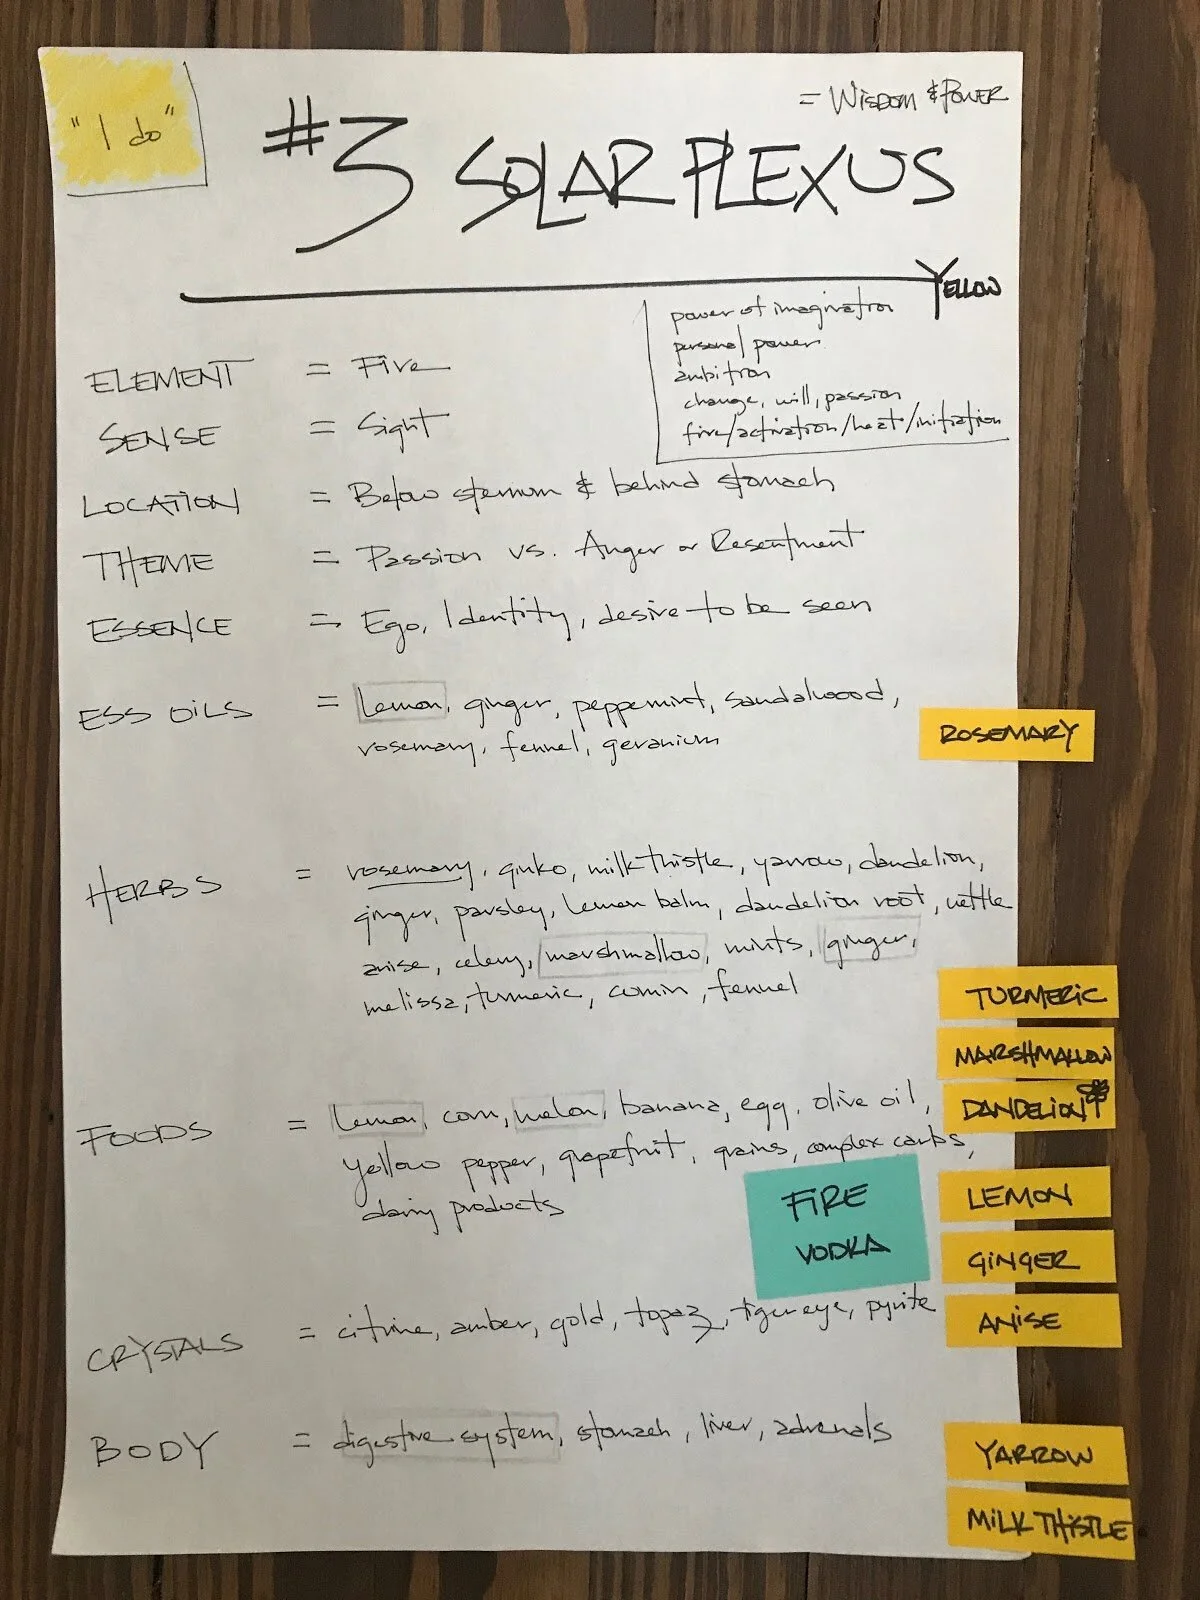 "I do"
= WISDOM & POWER
#3 SOLAR PLEXUS
YELLOW
power of imagination
personal power
ambition
change, will, passion
fire/activation/heat/initiation
ELEMENT = Fire
SENSE = Sight
LOCATION = Below sternum & behind stomach
THEME = Passion vs. Anger or Resentment
ESSENCE = Ego, Identity, desire to be seen
ESS OILS = lemon, ginger, peppermint, sandalwood,
rosemary, fennel, geranium
ROSEMARY
HERBS = rosemary, ginko, milk thistle, yarrow, dandelion,
ginger, parsley, lemon balm, dandelion root, nettle
anise, celery, marshmallow, mints, ginger,
melissa, turmeric, cumin, fennel
TURMERIC
MARSHMALLOW
DANDELION
FOODS = lemon, corn, melon, banana, egg, olive oil,
yellow pepper, grapefruit, grains, complex carbs,
dairy products
FIRE
VODKA
LEMON
GINGER
ANISE
CRYSTALS = citrine, amber, gold, topaz, tiger eye, pyrite
BODY = digestive system, stomach, liver, adrenals
YARROW
MILK THISTLE